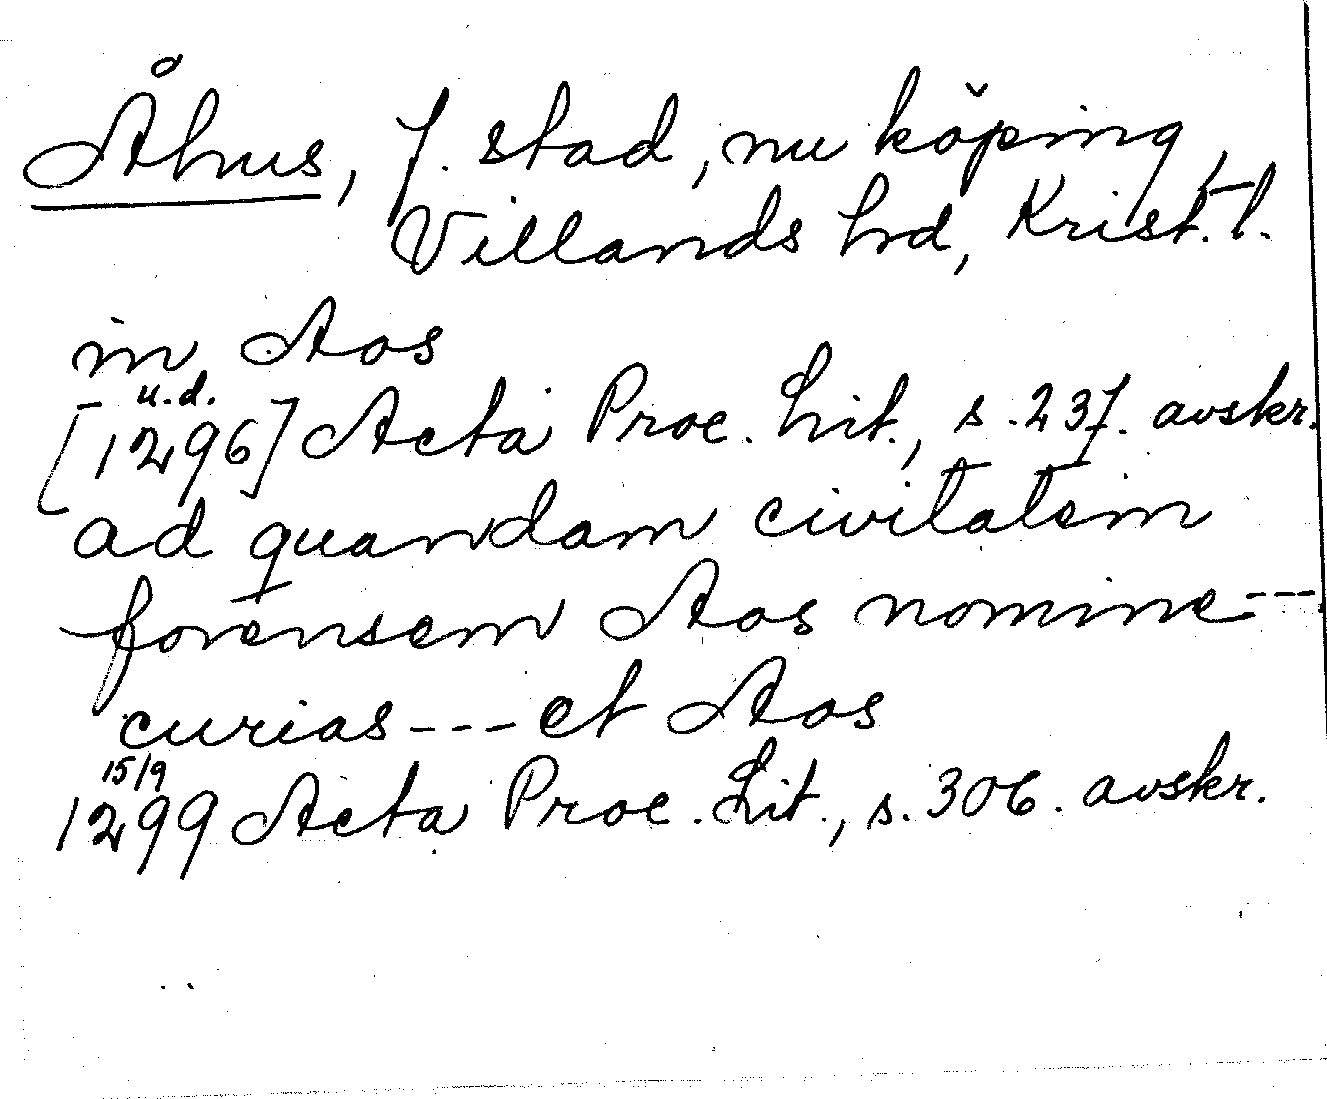 Åhus, f. stad, nu köping,
Villands hrd, Krist. l.
in Aos
u.d.
[1296] Acta Proc. Lit., s. 237. avskr.
ad quandam civitatem
forensem Aos nomine---
curias --- et Aos
15/9
1299 Acta Proc. Lit., s. 306. avskr.